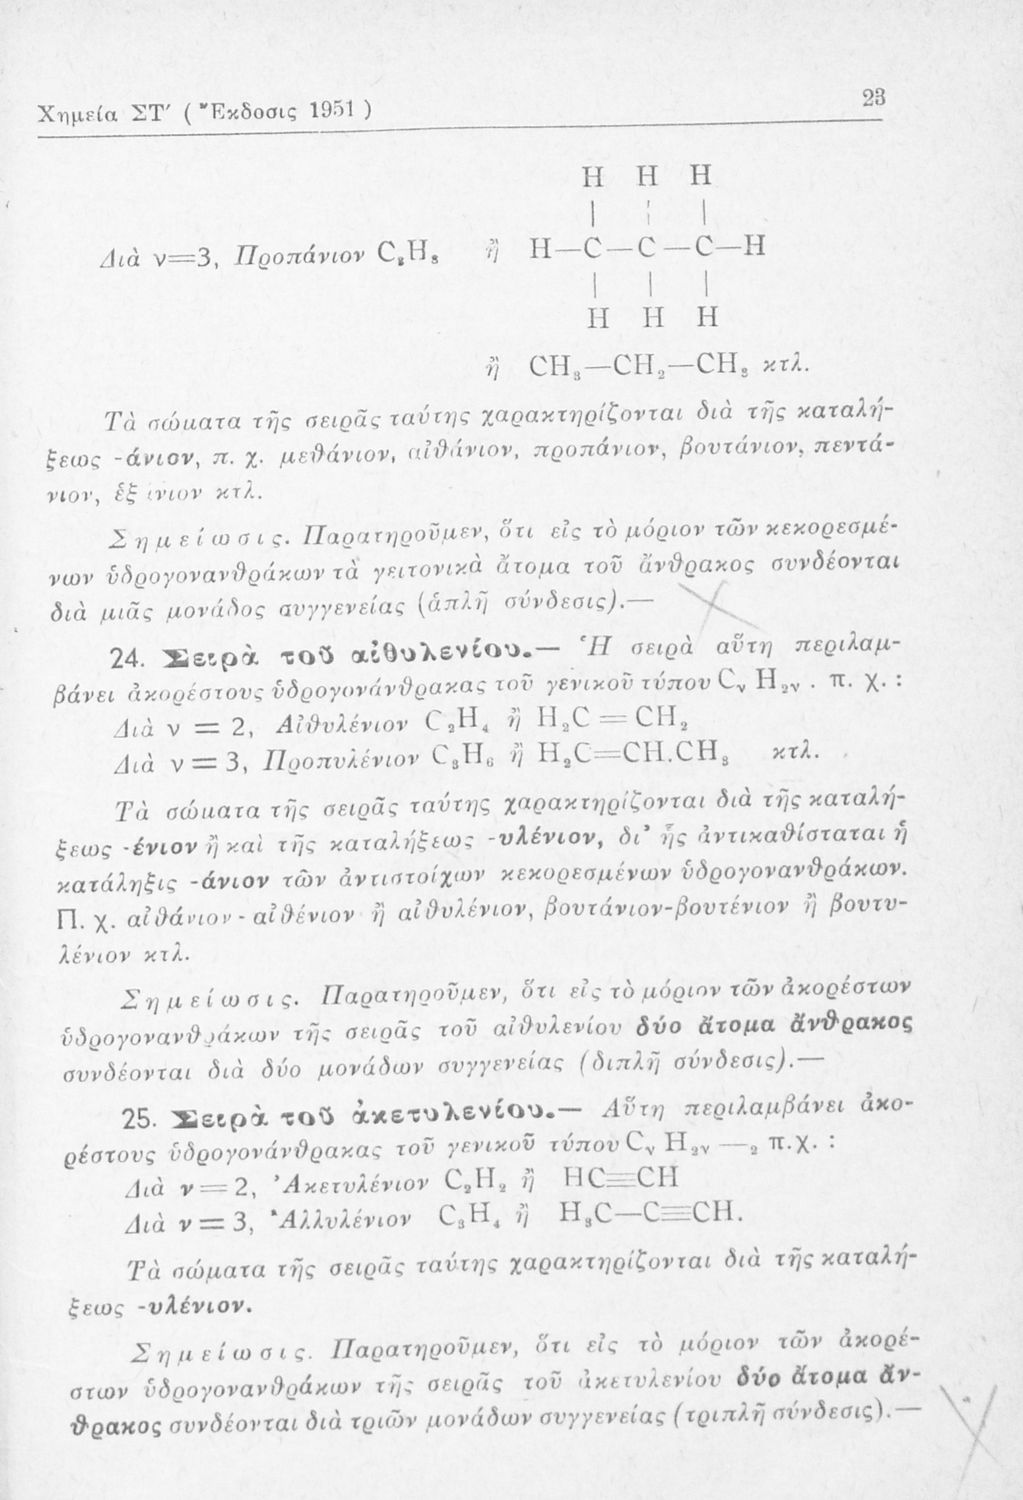 Χημεία ΣΤ′ ( Ἔκδοσις 1951 ) 23
H H H
| | |
Διὰ ν=3, Προπάνιον C₃H₈ ἢ H—C—C—C—H
| | |
H H H
ἢ CH₃—CH₂—CH₃ κτλ.
Τὰ σώματα τῆς σειρᾶς ταύτης χαρακτηρίζονται διὰ τῆς καταλή-
ξεως -άνιον, π. χ. μεθάνιον, αἰθάνιον, προπάνιον, βουτάνιον, πεντά-
νιον, ἑξάνιον κτλ.
Σημείωσις. Παρατηροῦμεν, ὅτι εἰς τὸ μόριον τῶν κεκορεσμέ-
νων ὑδρογονανθράκων τὰ γειτονικὰ ἄτομα τοῦ ἄνθρακος συνδέονται
διὰ μιᾶς μονάδος συγγενείας (ἁπλῆ σύνδεσις).—
24. Σειρὰ τοῦ αἰθυλενίου.— Ἡ σειρὰ αὕτη περιλαμ-
βάνει ἀκορέστους ὑδρογονάνθρακας τοῦ γενικοῦ τύπου Cᵥ H₂ᵥ . π. χ. :
Διὰ ν = 2, Αἰθυλένιον C₂H₄ ἢ H₂C = CH₂
Διὰ ν = 3, Προπυλένιον C₃H₆ ἢ H₂C=CH.CH₃ κτλ.
Τὰ σώματα τῆς σειρᾶς ταύτης χαρακτηρίζονται διὰ τῆς καταλή-
ξεως -ένιον ἢ καὶ τῆς καταλήξεως -υλένιον, δι' ἧς ἀντικαθίσταται ἡ
κατάληξις -άνιον τῶν ἀντιστοίχων κεκορεσμένων ὑδρογονανθράκων.
Π. χ. αἰθάνιον - αἰθένιον ἢ αἰθυλένιον, βουτάνιον-βουτένιον ἢ βουτυ-
λένιον κτλ.
Σημείωσις. Παρατηροῦμεν, ὅτι εἰς τὸ μόριον τῶν ἀκορέστων
ὑδρογονανθράκων τῆς σειρᾶς τοῦ αἰθυλενίου δύο ἄτομα ἄνθρακος
συνδέονται διὰ δύο μονάδων συγγενείας (διπλῆ σύνδεσις).—
25. Σειρὰ τοῦ ἀκετυλενίου.— Αὕτη περιλαμβάνει ἀκο-
ρέστους ὑδρογονάνθρακας τοῦ γενικοῦ τύπου Cᵥ H₂ᵥ —₂ π.χ. :
Διὰ ν = 2, Ἀκετυλένιον C₂H₂ ἢ HC≡CH
Διὰ ν = 3, Ἀλλυλένιον C₃H₄ ἢ H₃C—C≡CH.
Τὰ σώματα τῆς σειρᾶς ταύτης χαρακτηρίζονται διὰ τῆς καταλή-
ξεως -υλένιον.
Σημείωσις. Παρατηροῦμεν, ὅτι εἰς τὸ μόριον τῶν ἀκορέ-
στων ὑδρογονανθράκων τῆς σειρᾶς τοῦ ἀκετυλενίου δύο ἄτομα ἄν-
θρακος συνδέονται διὰ τριῶν μονάδων συγγενείας (τριπλῆ σύνδεσις).—